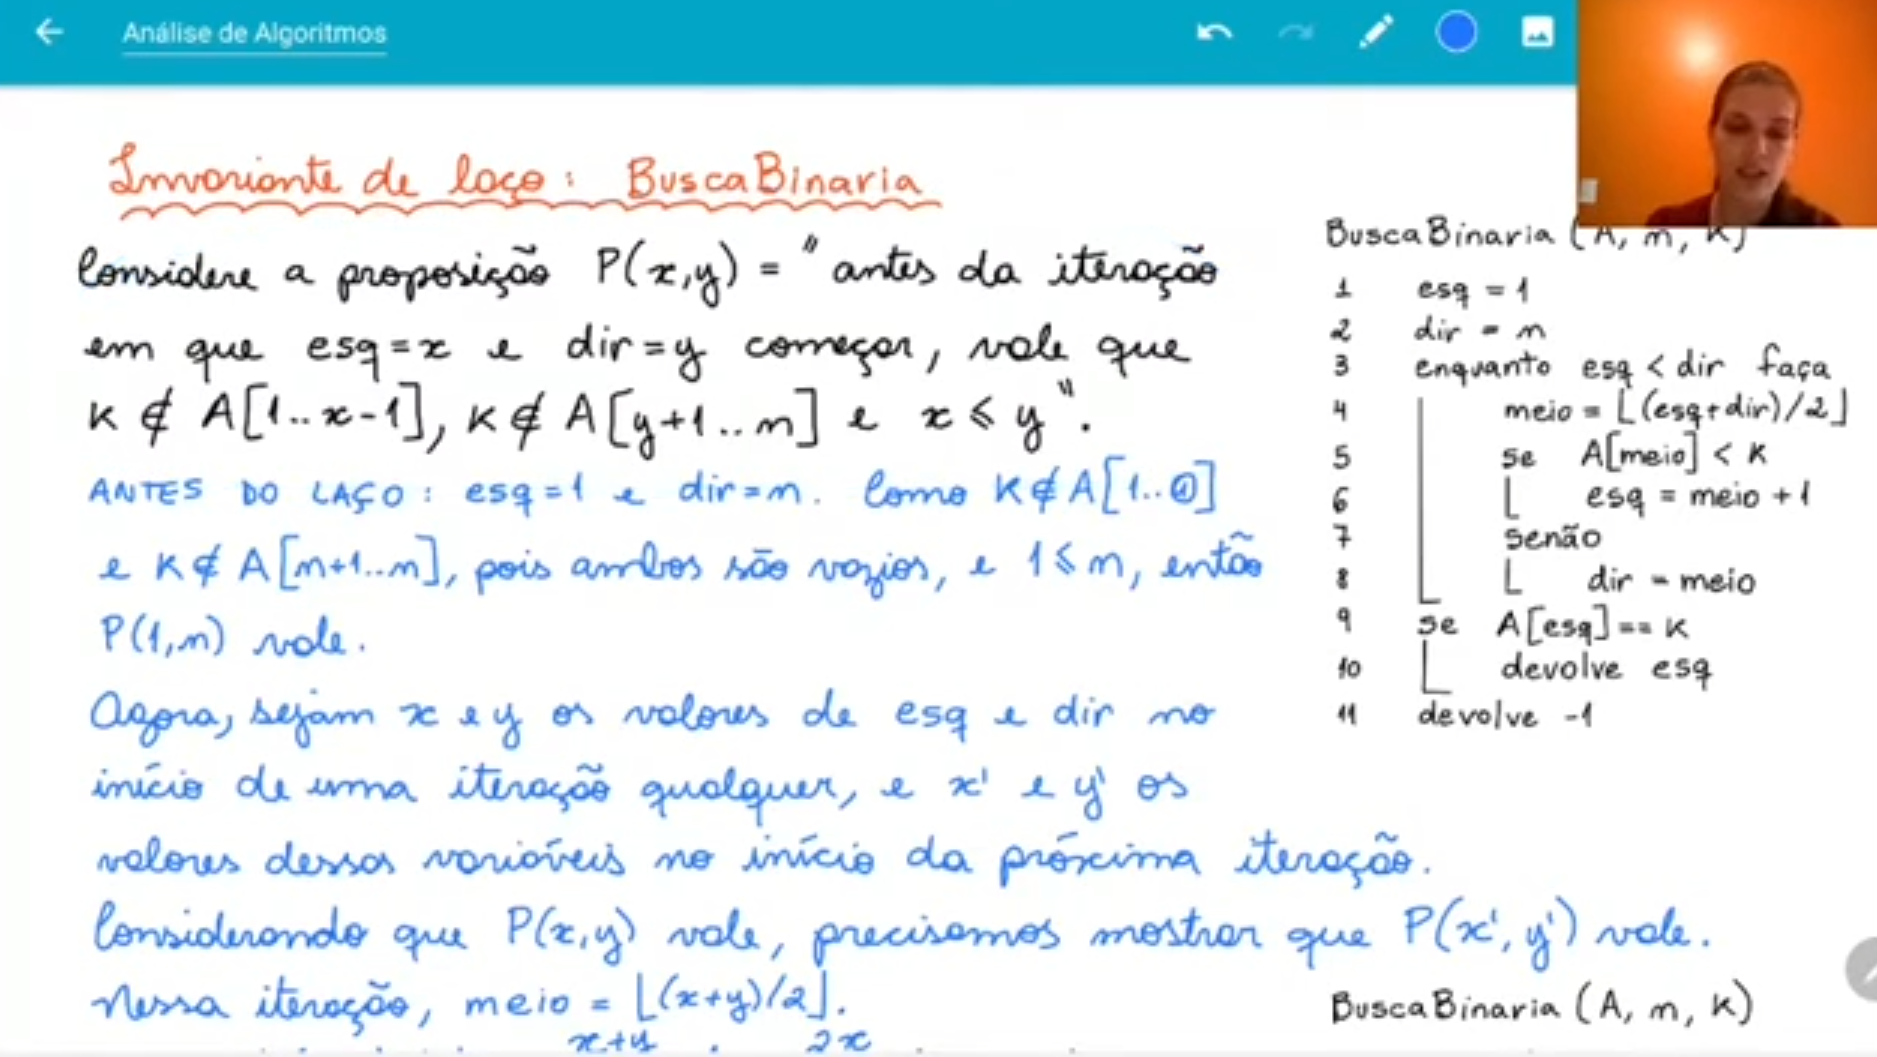 Análise de Algoritmos
Invariante de laço: BuscaBinaria
Considere a proposição P(x,y) = "antes da iteração
em que esq=x e dir=y começar, vale que
K ∉ A[1..x-1], K ∉ A[y+1..n] e x ≤ y".
ANTES DO LAÇO: esq=1 e dir=n. Como K ∉ A[1..0]
e K ∉ A[n+1..n], pois ambos são vazios, e 1 ≤ n, então
P(1,n) vale.
Agora, sejam x e y os valores de esq e dir no
início de uma iteração qualquer, e x' e y' os
valores dessas variáveis no início da próxima iteração.
Considerando que P(x,y) vale, precisamos mostrar que P(x',y') vale.
Nessa iteração, meio = ⌊(x+y)/2⌋.
x+y 2x
BuscaBinaria (A, n, K)
1 esq = 1
2 dir = n
3 enquanto esq < dir faça
4 meio = ⌊(esq+dir)/2⌋
5 se A[meio] < K
6 esq = meio + 1
7 senão
8 dir = meio
9 se A[esq] == K
10 devolve esq
11 devolve -1
BuscaBinaria (A, n, K)